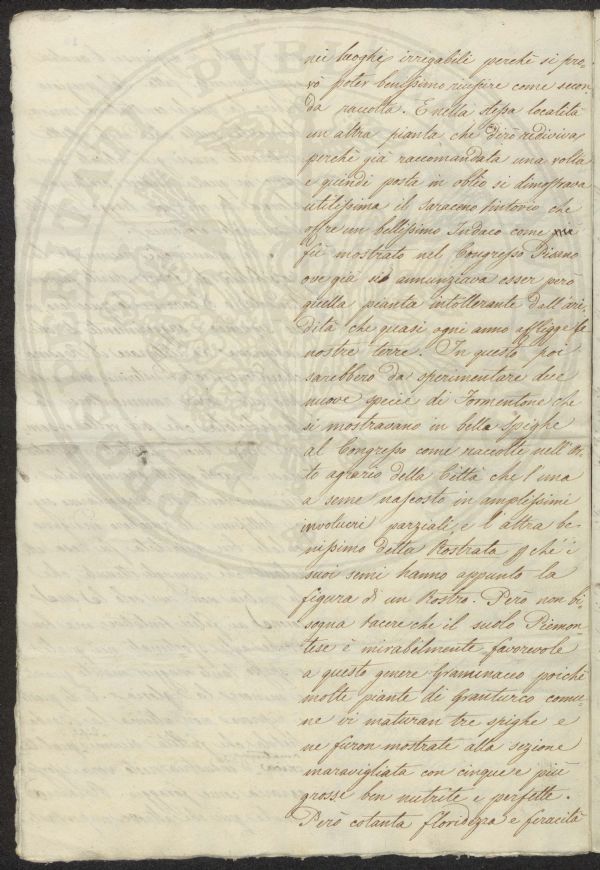 nei luoghi irrigabili perchè si pro-
vò poter benissimo riuspire come secon-
da raccolta. E nella stessa località
un altra pianta che dirò rediviva
perchè già raccomandata una volta
e quindi posta in oblio si dimostrava
utilissima il saraceno tintorio che
offre un bellissimo Indaco come me
fu mostrato nel Congresso Pisano
ove già si annunziava esser però
quella pianta intollerante dall'ari-
dità che quasi ogni anno affligge le
nostre terre. In questo poi
sarebbero da sperimentare due
nuove specie di Formentone che
si mostravano in bella spighe
al Congresso come raccolte nell'Or-
to agrario della Città che l'una
a seme nascosto in amplissimi
involucri parziali, e l'altra be-
nissimo detta Rostrata pchè i
suoi semi hanno appunto la
figura di un Rostro. Però non bi-
sogna tacere che il suolo Piemon-
tese è mirabilmente favorevole
a questo genere Graminaceo poichè
molte piante di Granturco comu-
ne vi maturan tre spighe e
ne furon mostrate alla sezione
maravigliata con cinque e più
grosse ben nutrite e perfette.
Però cotanta floridezza e feracità